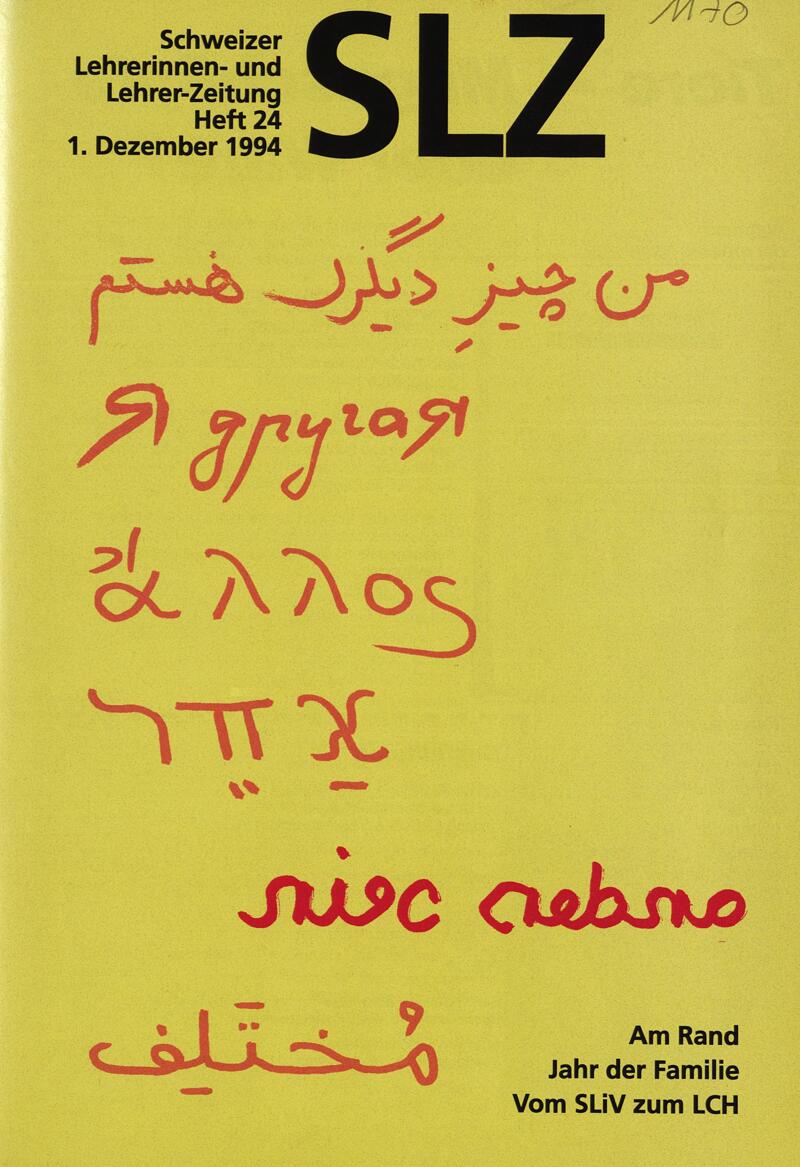 Schweizer
Lehrerinnen- und
Lehrer-Zeitung
Heft 24
1. Dezember 1994
SLZ
من چیزِ هستم
Я другая
ἄλλος
אַחֵר
مُختَلِف
Am Rand
Jahr der Familie
Vom SLiV zum LCH